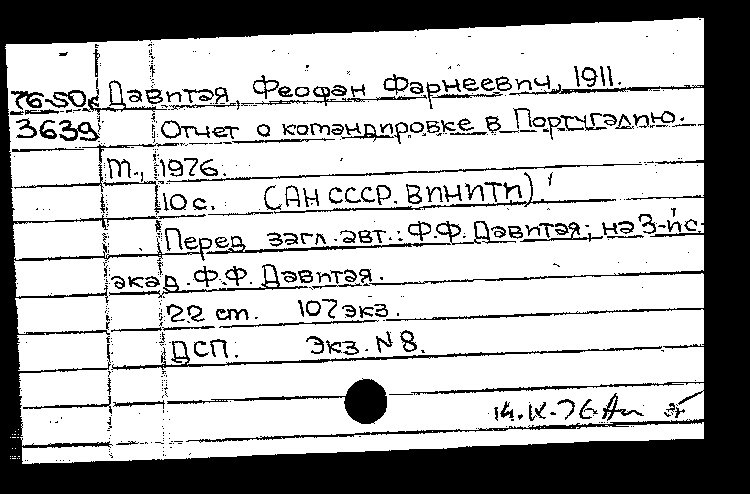 76-50с Давитая, Феофан Фарнеевич, 1911.
3639 Отчет о командировке в Португалию.
М., 1976.
10 с. (АН СССР. ВИНИТИ).
Перед загл. авт.: Ф.Ф. Давитая; на 3-й с.
акад. Ф.Ф. Давитая.
22 см. 107 экз.
ДСП. Экз. N 8.
14.IX.76